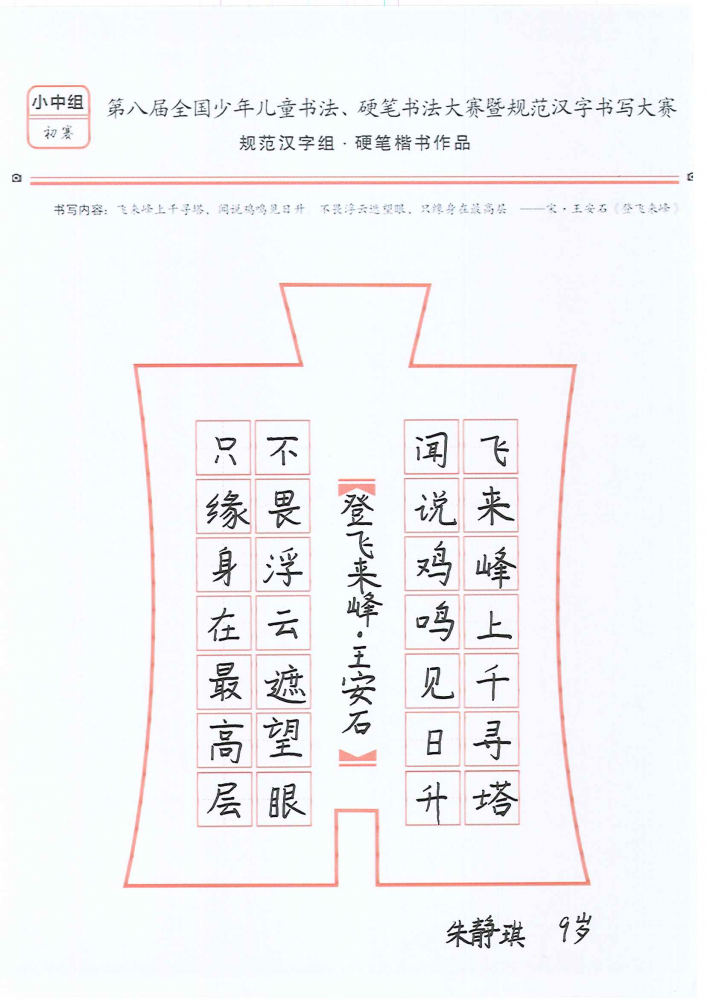 小中组
初赛
第八届全国少年儿童书法、硬笔书法大赛暨规范汉字书写大赛
规范汉字组·硬笔楷书作品
书写内容：飞来峰上千寻塔，闻说鸡鸣见日升。不畏浮云遮望眼，只缘身在最高层 ——宋·王安石《登飞来峰》
飞来峰上千寻塔
闻说鸡鸣见日升
登飞来峰·王安石
不畏浮云遮望眼
只缘身在最高层
朱静琪 9岁